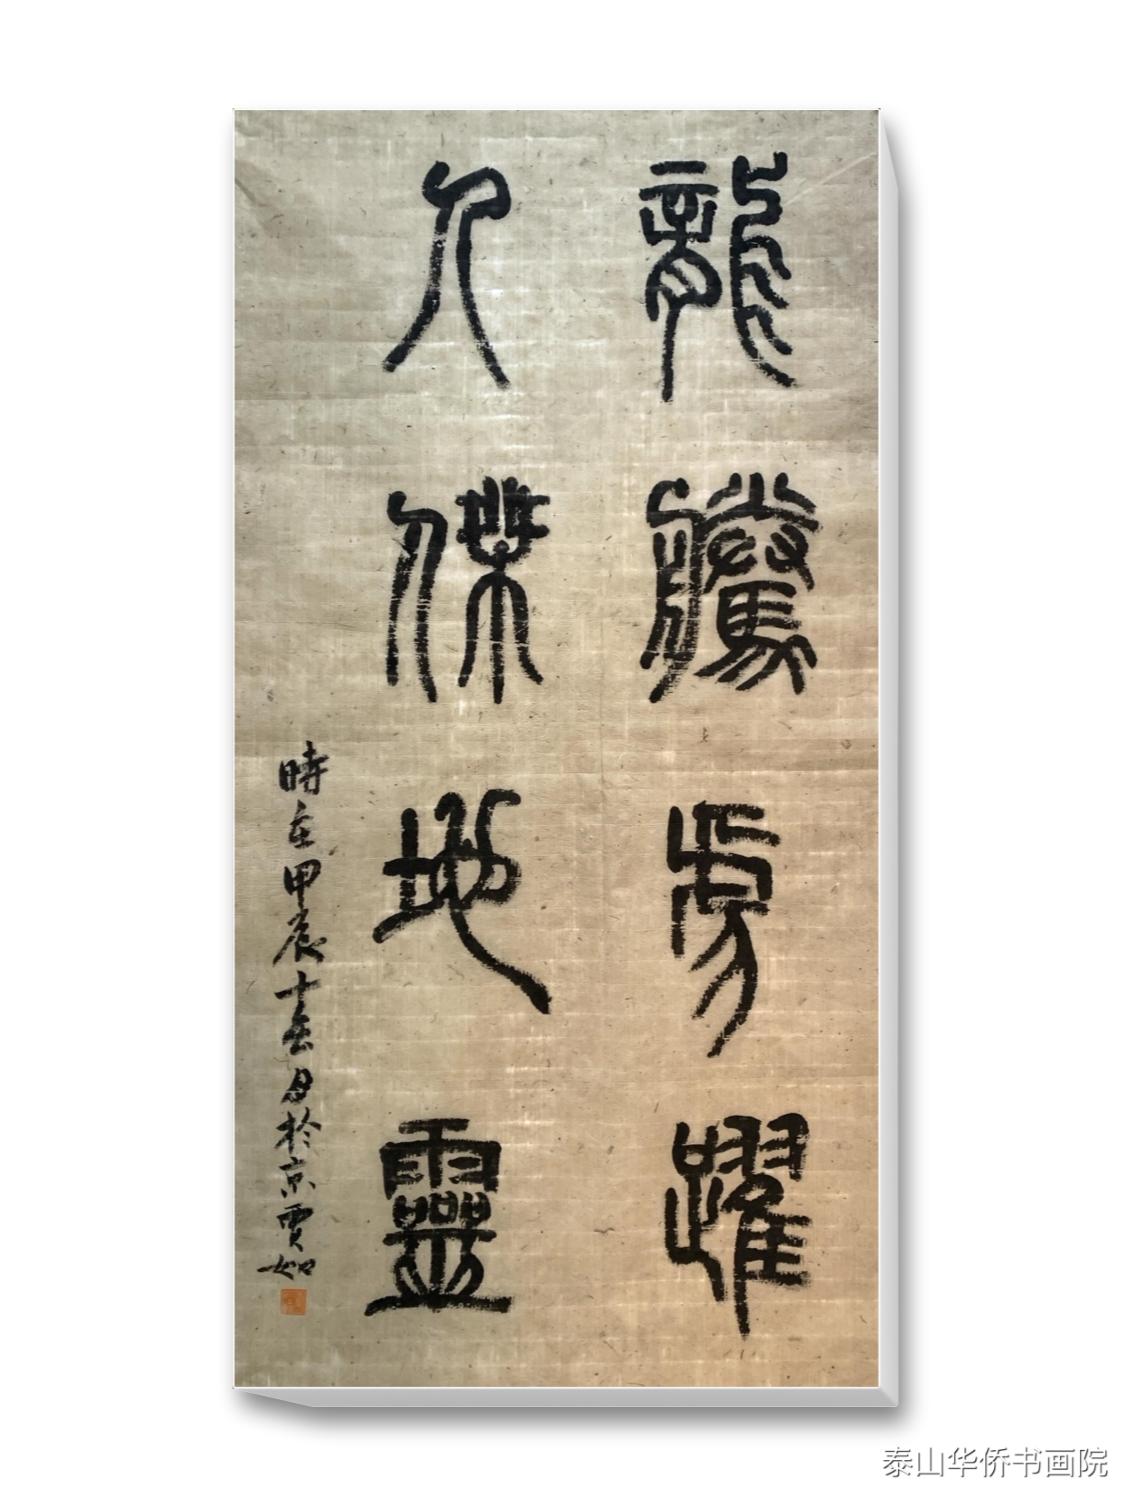 龍騰虎躍
人傑地靈
時在甲辰十春月於京賈如
泰山华侨书画院